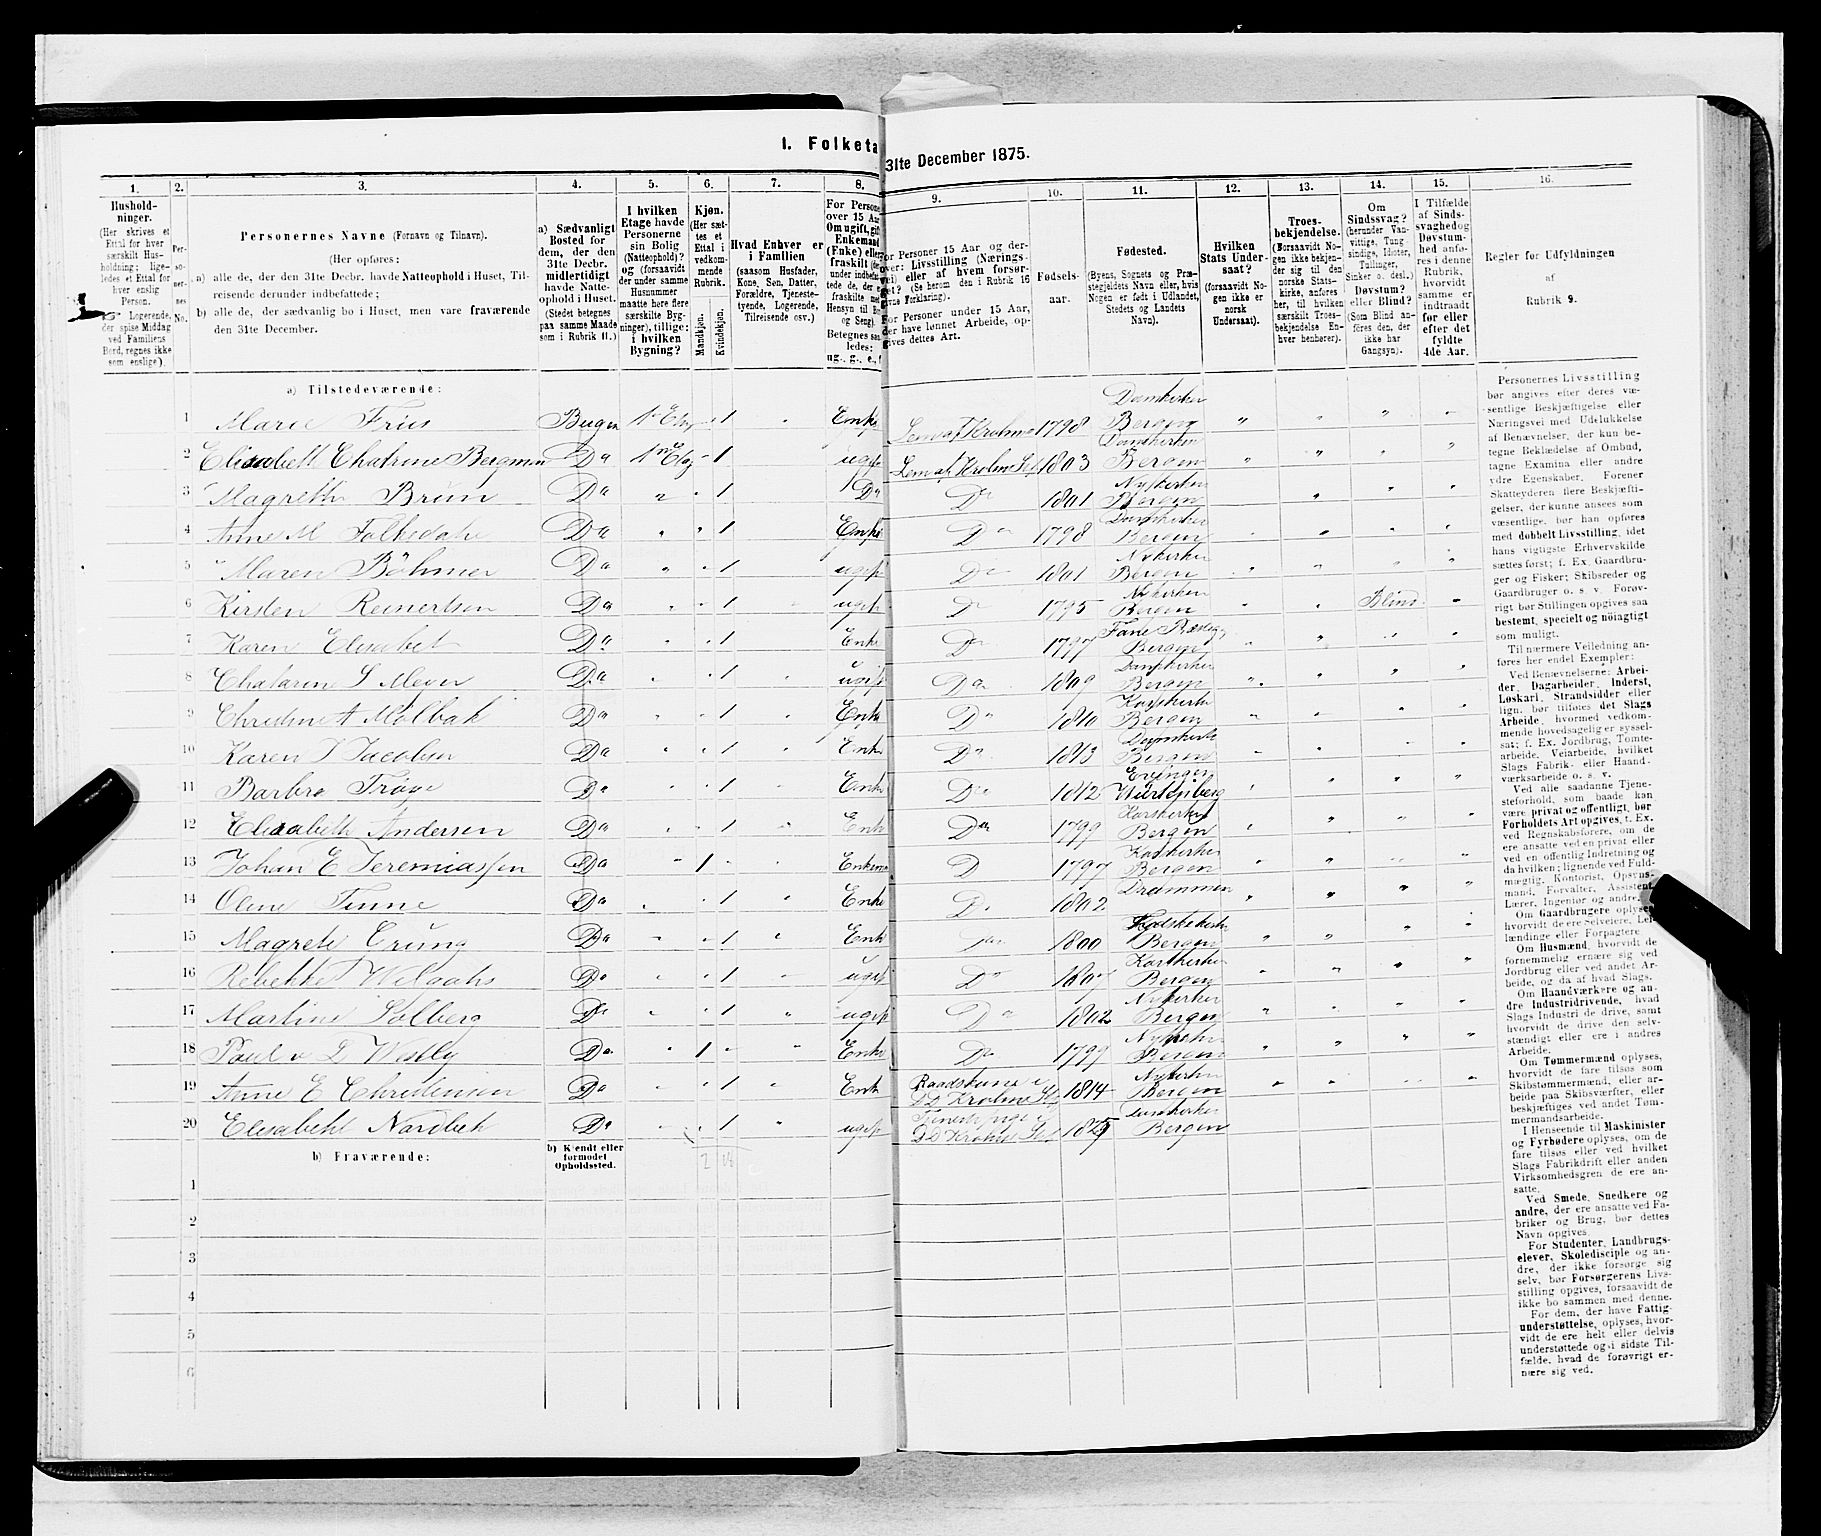 1. Folketa
31te December 1875.
1. 2. 3. 4. 5. 6. 7. 8. 9. 10. 11. 12. 13. 14. 15. 16.
Hushold-
ninger.
(Her skrives et
Ettal for hver
særskilt Hus-
holdning; lige-
ledes et Ettal for
hver enslig
Person.
Logerende,
der spise Middag
ved Familiens
Bord, regnes ikke
som enslige).
Per-
so-
ner-
nes
No.
Personernes Navne (Fornavn og Tilnavn).
(Her opføres:
a) alle de, der den 31te Decbr. havde Natteophold i Huset, Til-
reisende derunder indbefattede;
b) alle de, der sædvanlig bo i Huset, men vare fraværende
den 31te December.
a) Sædvanligt
Bosted for
dem, der den
31te Decbr.
midlertidigt
havde Natte-
ophold i Huset.
(Stedet betegnes
paa samme Maade
som i Rubrik 11.)
I hvilken
Etage havde
Personerne
sin Bolig
(Natteophold)?
og (forsaavidt
der under samme
Husnummer
maatte høre flere
særskilte Byg-
ninger), tillige:
i hvilken
Bygning?
Kjøn.
(Her sæt-
tes et
Ettal i
vedkom-
mende
Rubrik.
Mandkjøn.
Kvindekjøn.
Hvad Enhver er
i Familien
(saasom Husfader,
Kone, Søn, Datter,
Forældre, Tjeneste-
tyende, Logerende,
Tilreisende osv.)
For Persone
over 15 Aar
Om ugift, gift
Enkemand
(Enke) eller
fraskilt
under indbefat
tede de, der e
fraskilte med
Hensyn til Bo
og Seng).
Betegnes saa
ledes:
ug., g., e.,
For Personer 15 Aar og der-
over: Livsstilling (Nærings-
vei) eller af hvem forsør-
get? (Se herom den i Rubrik 16
givne Forklaring).
For Personer under 15 Aar,
der have lønnet Arbeide, op-
gives dettes Art.
Fødsels-
aar.
Fødested.
(Byens, Sognets og Præ-
stegjeldets Navn eller, hvis
Nogen er født i Udlandet,
Stedets og Landets
Navn).
Hvilken
Stats Under-
saat?
(forsaavidt No-
gen ikke er
norsk
Undersaat).
Troes-
bekjendelse.
(Forsaavidt No-
gen ikke bekjen-
der sig til den
norske Stats-
kirke, anføres
her, til hvilken
særskilt Troes-
bekjendelse En-
hver henhører).
Om
Sindssvag?
(herunder Van-
vittige, Tung-
sindige, Idioter,
Tullinger,
Sinker o. desl.)
Døvstum?
eller Blind?
(Som Blind an-
føres den, der
ikke har
Gangsyn).
I Tilfælde
af Sinds-
svaghed og
Døvstum-
hed anfø-
res i denne
Rubrik,
hvorvidt
samme er
indtraadt
før eller
efter det
fyldte
4de Aar.
Regler før Udfyldningen
af
Rubrik 9.
a) Tilstedeværende:
1 Marie Friis Bergen 1ste Etag 1 Enke Lem af Krohns 1798 Domkirken Bergen
2 Elisabett Chatrine Bergman Da 1 Etag 1 ugift Lem af Krohns 1803 Domkirken Bergen
3 Magrethe Brun Da 1 Da Do 1801 Nykirken Bergen
4 Anne M Folkedahl Da 1 Enke Do 1798 Domkirken Bergen
5 Maren Böhmer Da 1 ugift Do 1801 Nykirken Bergen
6 Kirsten Reinertsen Da 1 ugift Do 1795 Nykirken Bergen Blind
7 Karen Elisabet Da 1 Enke Do 1797 Fane Bergen
8 Chatarine S Meyer Da 1 ugift Da 1809 Domkirken Bergen
9 Christine A Molbak Da 1 Enke Do 1810 Korskirke Bergen
10 Karen J Jacobsen Da 1 Enke Da 1813 Domkirke Bergen
11 Barbro Da 1 Enke Da 1812 Würtenberg
12 Elisabeth Andersen Da 1 Enk Da 1799 Korskirken Bergen
13 Johan E Jeremiassen Da 1 Enkem D 1797 Korskirken Bergen
14 Oline Finne Da 1 Enke D. 1802 Drammen
15 Magrete Da 1 Enk Da 1800 Bergen
16 Rebekke Da 1 ugift Do 1807 Korskirken Bergen
17 Martine Solberg Da 1 ugift Do 1802 Nykirken Bergen
18 Poul v D Westby Da 1 Enke Da 1799 Nykirken Bergen
19 Anne E Christensen Da 1 Enk Raadskone i D D Krohns St 1814 Nykirken Bergen
20 Elisabeht Nordbek Da 1 ugift Tjenestepige i D D Krohns St 1825 Domkirken Bergen
2 18
b) Fraværende:
b) Kjendt eller
formodet
Opholdssted.
1
2
3
4
5
6
Personernes Livsstilling
bør angives efter deres væ-
sentlige Beskjæftigelse eller
Næringsvei med Udelukkelse
af Benævnelser, der kun be-
tegne Beklædelse af Ombud,
tagne Examina eller andre
ydre Egenskaber. Forener
Skatteyderen flere Beskjæfti-
gelser, der kunne ansees som
væsentlige, bør han opføres
med dobbelt Livsstilling, idet
hans vigtigste Erhvervskilde
sættes først; f. Ex. Gaardbru-
ger og Fisker; Skibsreder og
Gaardbruger o. s. v. Forøv-
rigt bør Stillingen opgives saa
bestemt, specielt og nøiagtigt
som muligt.
Til nærmere Veiledning an-
føres her endel Exempler:
Ved Benævnelserne: Arbei-
der, Dagarbeider, Inderst,
Løskarl, Strandsidder eller
lign. bør tilføres det Slags
Arbeide, hvormed vedkom-
mende hovedsagelig er syssel-
sat; f. Ex. Jordbrug, Tomte-
arbeide, Veiarbeide, hvilket
Slags Fabrik- eller Haand-
værksarbeide o. s. v.
Ved alle saadanne Tjene-
steforhold, som baade kan
være privat og offentligt, bør
Forholdets Art opgives, t. Ex.
ved Regnskabsførere, om de
ere ansatte ved en privat eller
ved en offentlig Indretning og
da hvilken; lignende ved Fuld-
mægtig, Kontorist, Opsyns-
mand, Forvalter, Assistent,
Lærer, Ingeniør og andre.
Om Gaardbrugere oplyses,
hvorvidt de ere Selveiere, Lei-
lændinge eller Forpagtere.
Om Husmænd, hvorvidt de
fornemmelig ernære sig ved
Jordbrug eller ved andet Ar-
beide, og da af hvad Slags.
Om Haandværkere og an-
dre Industridrivende, hvad
Slags Industri de drive, samt
hvorvidt de drive den selv-
stændigt eller ere i andres
Arbeide.
Om Tømmermænd oplyses,
hvorvidt de fare tilsøs som
Skibstømmermænd, eller ar-
beide paa Skibsværfter, eller
beskjæftiges ved andet Tøm-
mermandsarbeide.
I Henseende til Maskinister
og Fyrbødere oplyses, om de
fare tilsøs eller ved hvilket
Slags Fabrikdrift eller anden
Virksomhedsgren de ere an-
satte.
Ved Smede, Snedkere og
andre, der ere ansatte ved Fa-
briker og Brug, bør dettes
Navn opgives.
For Studenter, Landbrugs-
elever, Skoledisciple og an-
dre, der ikke forsørge sig
selv, bør Forsørgerens Livs-
stilling opgives, forsaavidt de
ikke bo sammen med denne.
For dem, der have Fattig-
understøttelse, oplyses, hvor-
vidt de ere helt eller delvis
understøttede og i sidste Til-
fælde, hvad de forøvrigt er-
nære sig ved.